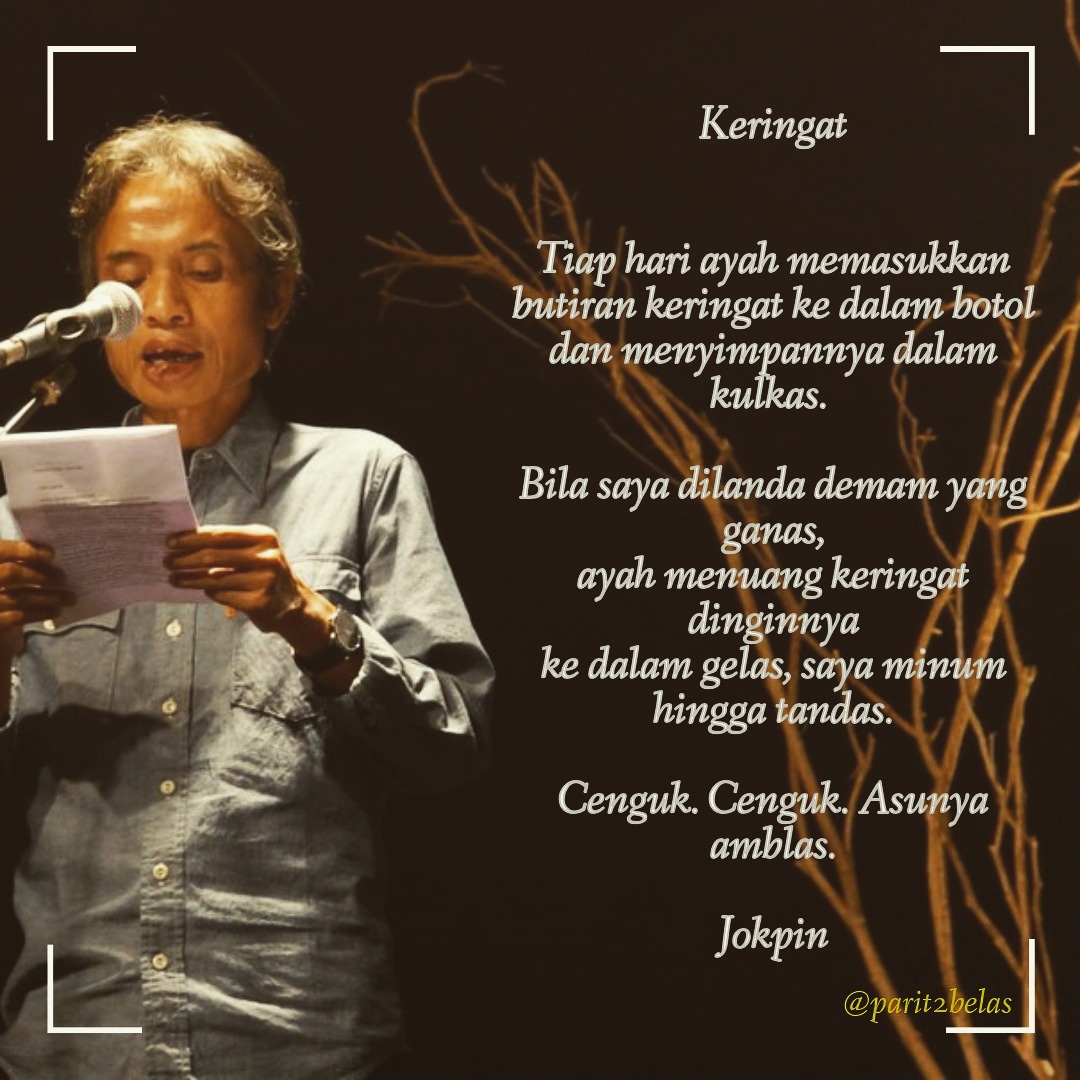 Keringat
Tiap hari ayah memasukkan
butiran keringat ke dalam botol
dan menyimpannya dalam
kulkas.
Bila saya dilanda demam yang
ganas,
ayah menuang keringat
dinginnya
ke dalam gelas, saya minum
hingga tandas.
Cenguk. Cenguk. Asunya
amblas.
Jokpin
@parit2belas